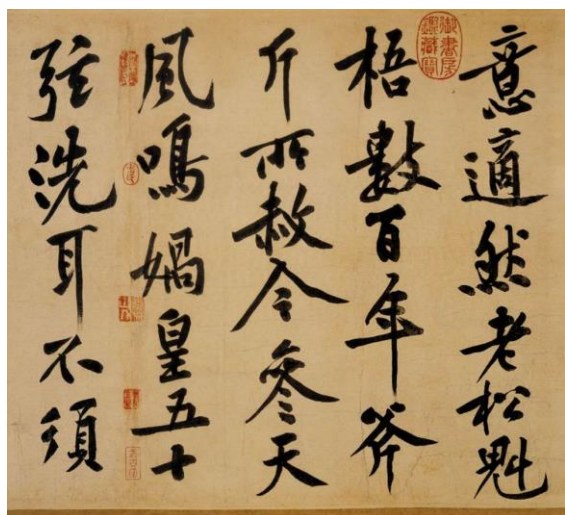 意適然老松魁
梧數百年斧
斤所赦今參天
風鳴媧皇五十
弦洗耳不須
御書房
鑑藏寶